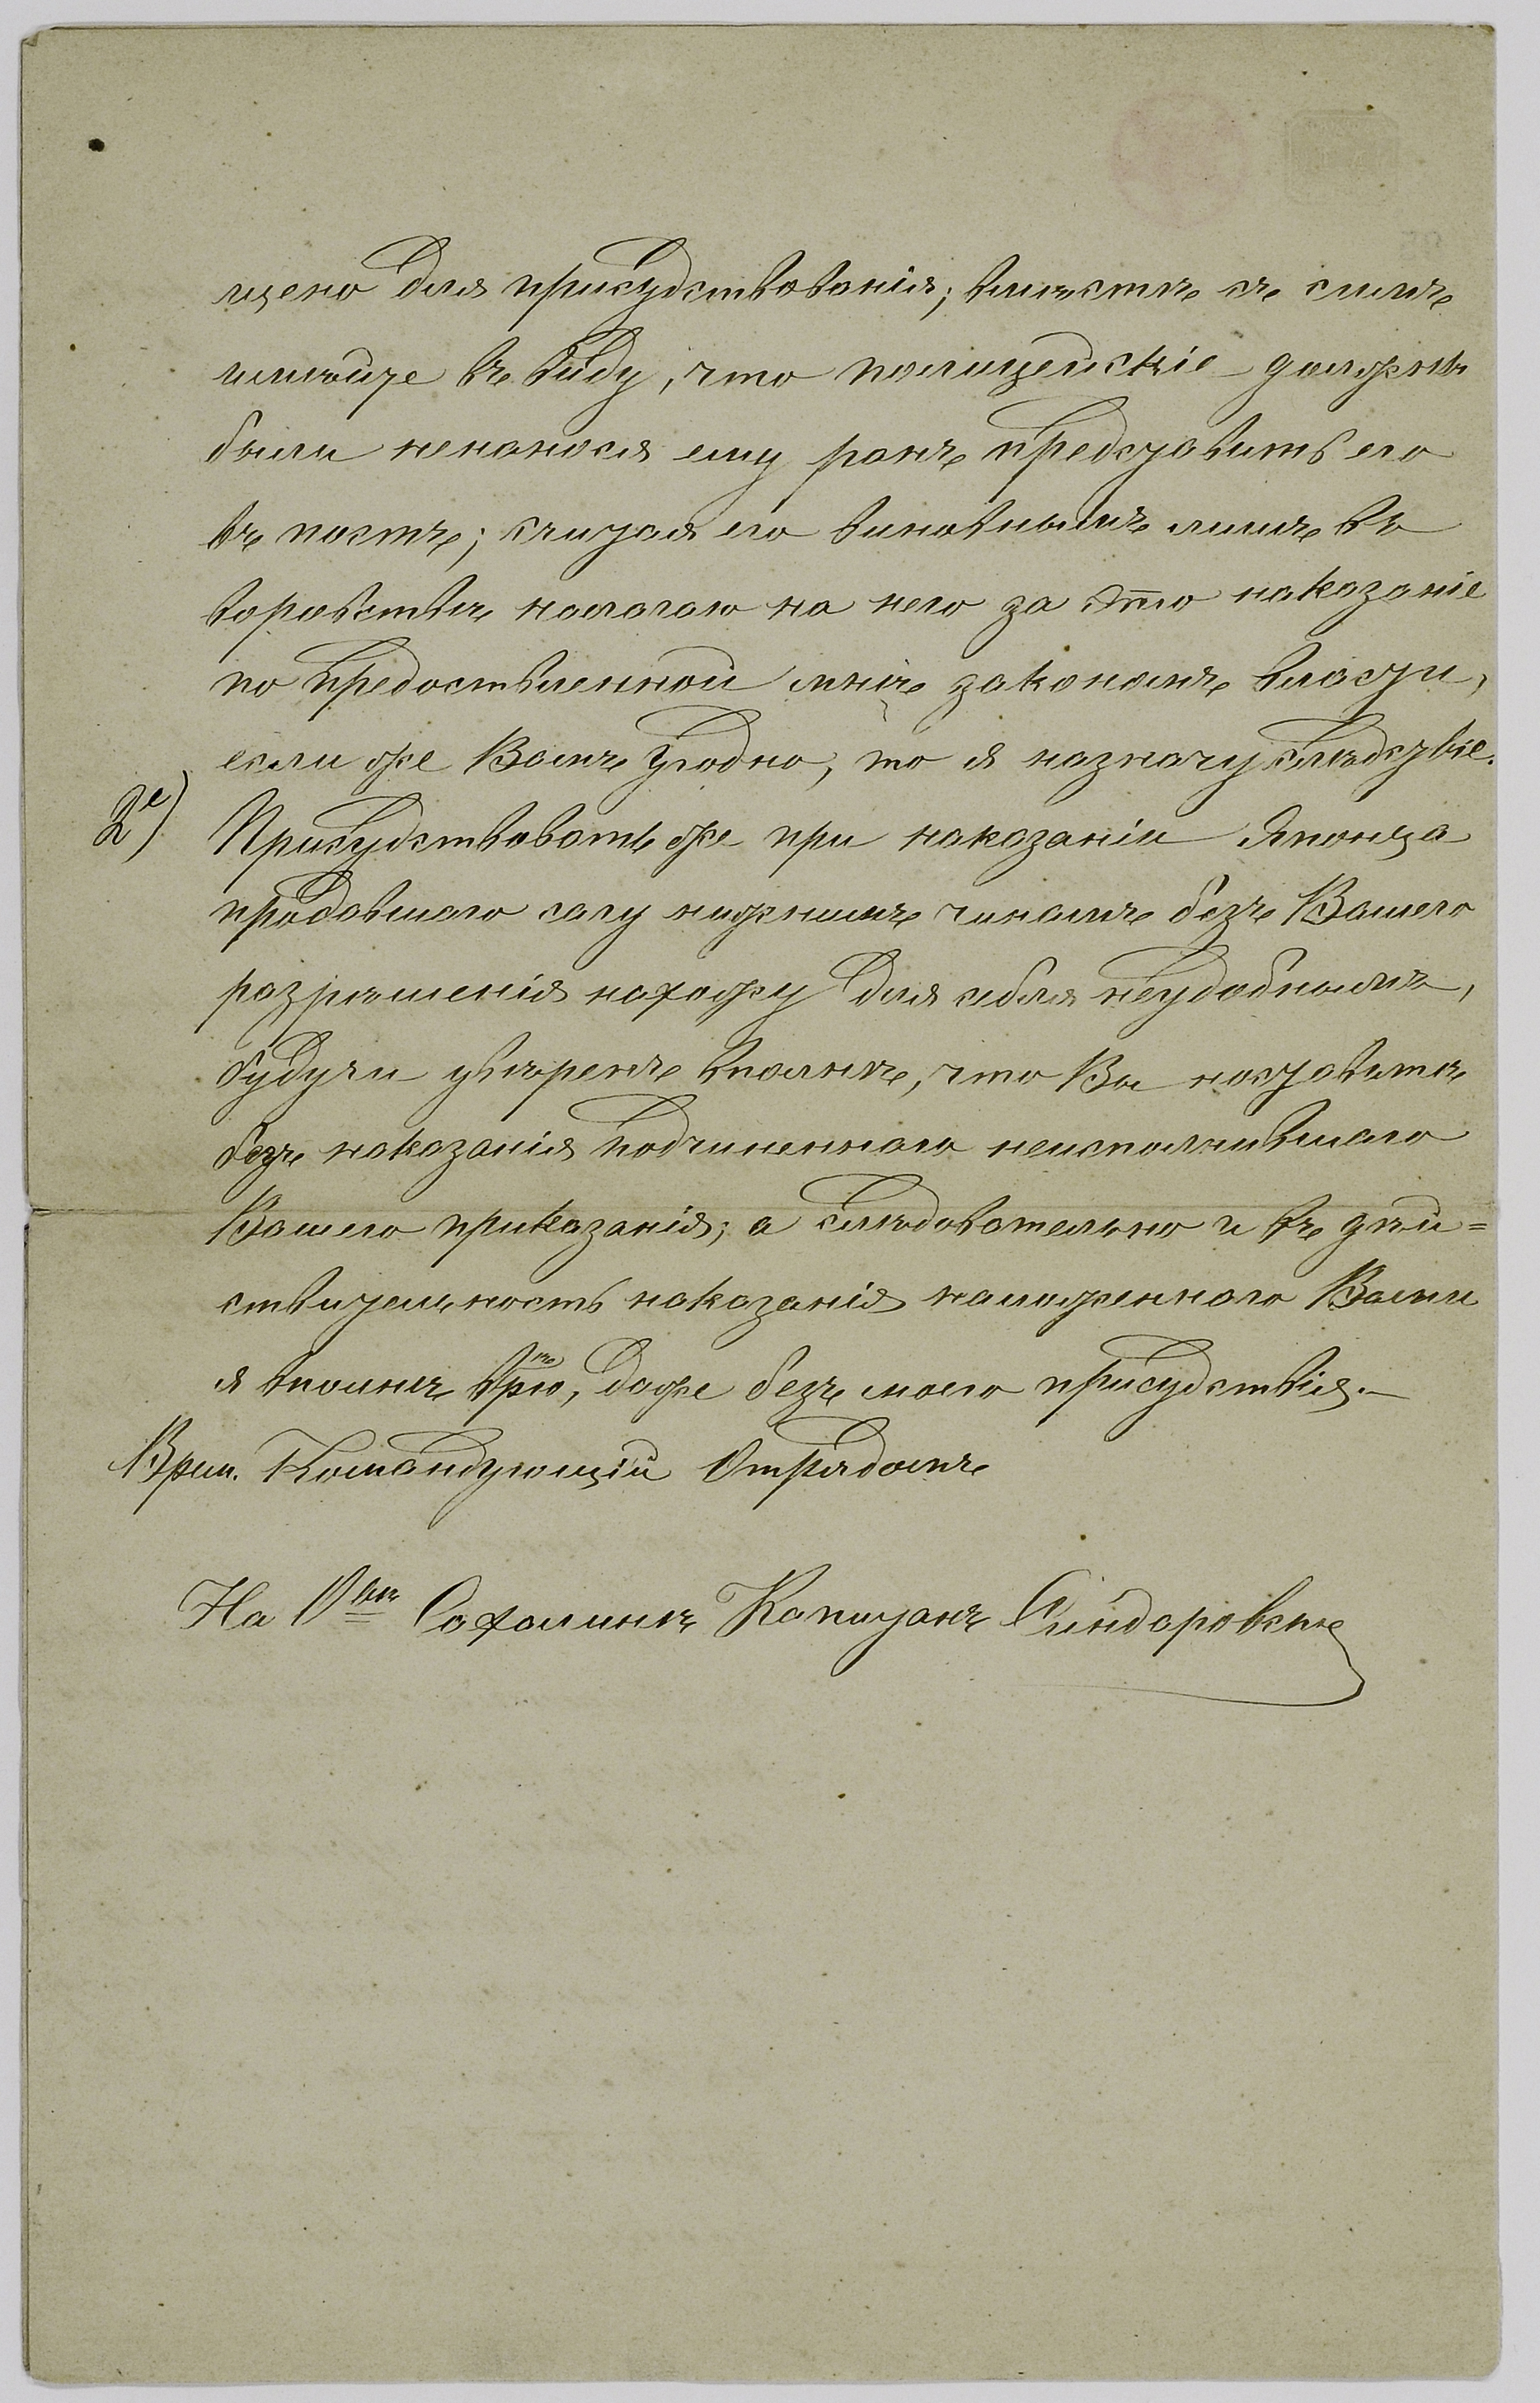 щено для присудствованія; вместе съ симъ
имейте въ виду, что полицейскіе должны
были ненанося ему ранъ представить его
въ постъ; считая его виновнымъ лишь въ
воровстве налагаю на него за это наказаніе
по предоствленной мне закономъ власти,
если же Вамъ Угодно, то я назначу следствіе.
2е) Присудствовать же при наказаніи Японца
продавшаго саку нижнимъ чинамъ безъ Вашего
разрешенія нахожу для себя неудобнымъ,
будучи увѣренъ вполнѣ, что Вы неоставите
безъ наказанія подчиненнаго неисполнившаго
Вашего приказанія; а слѣдовательно и въ дѣй=
ствительность наказанія наложеннаго Вами
я вполнѣ вѣрю, даже безъ моего присудствія.—
Врем. Командующій Отрядомъ
На О-вѣ Сахалинѣ Капитанъ